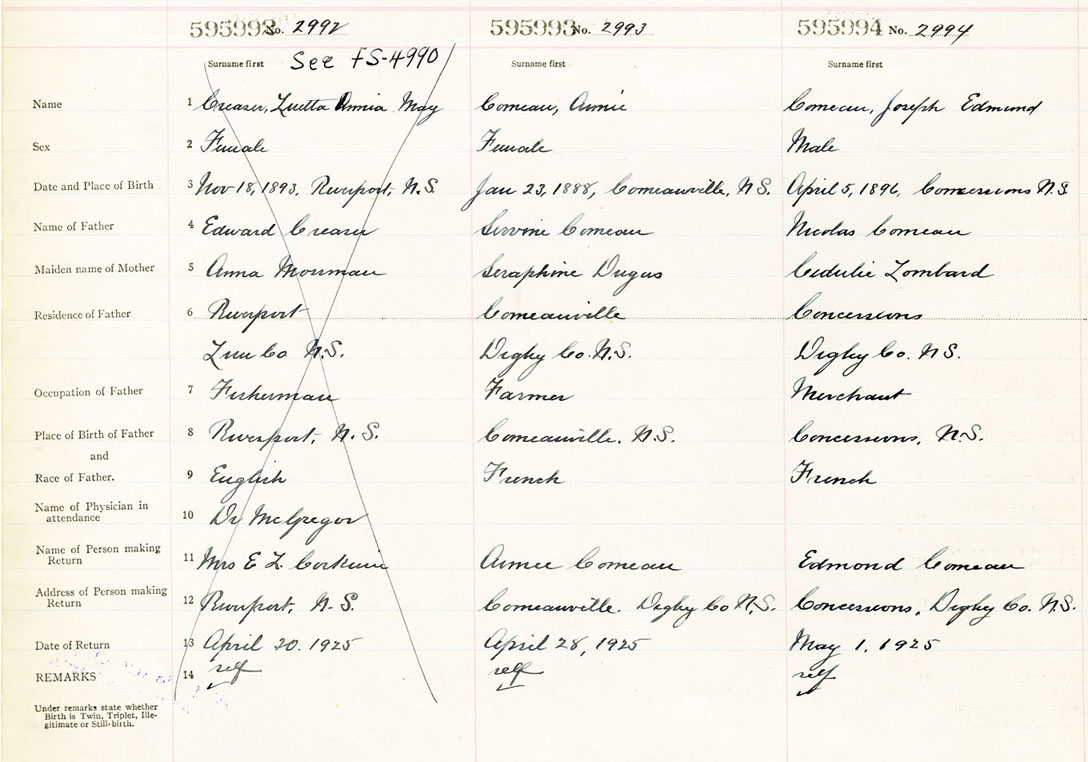 595992 No. 2992 595993 No. 2993 595994 No. 2994
See FS-4990
Surname first Surname first Surname first
Name 1 Creaser, Luetta Annia May Comeau, Annie Comeau, Joseph Edmund
Sex 2 Female Female Male
Date and Place of Birth 3 Nov 18, 1893, Riverport, N.S. Jan 23, 1888, Comeauville, N.S. April 5, 1896, Concessions N.S
Name of Father 4 Edward Creaser Servine Comeau Nicolas Comeau
Maiden name of Mother 5 Anna Mossman Seraphine Dugas Cedulie Lombard
Residence of Father 6 Riverport Comeauville Concessions
Lun Co N.S. Digby Co. N.S. Digby Co. N.S.
Occupation of Father 7 Fisherman Farmer Merchant
Place of Birth of Father 8 Riverport, N.S. Comeauville. N.S. Concessions, N.S.
and
Race of Father. 9 English French French
Name of Physician in
attendance 10 Dr McGregor
Name of Person making
Return 11 Mrs E L Corkum Annie Comeau Edmond Comeau
Address of Person making
Return 12 Riverport, N.S. Comeauville. Digby Co N.S. Concessions, Digby Co. N.S.
Date of Return 13 April 20. 1925 April 28, 1925 May 1, 1925
REMARKS 14 self self self
Under remarks state whether
Birth is Twin, Triplet, Ille-
gitimate or Still-birth.